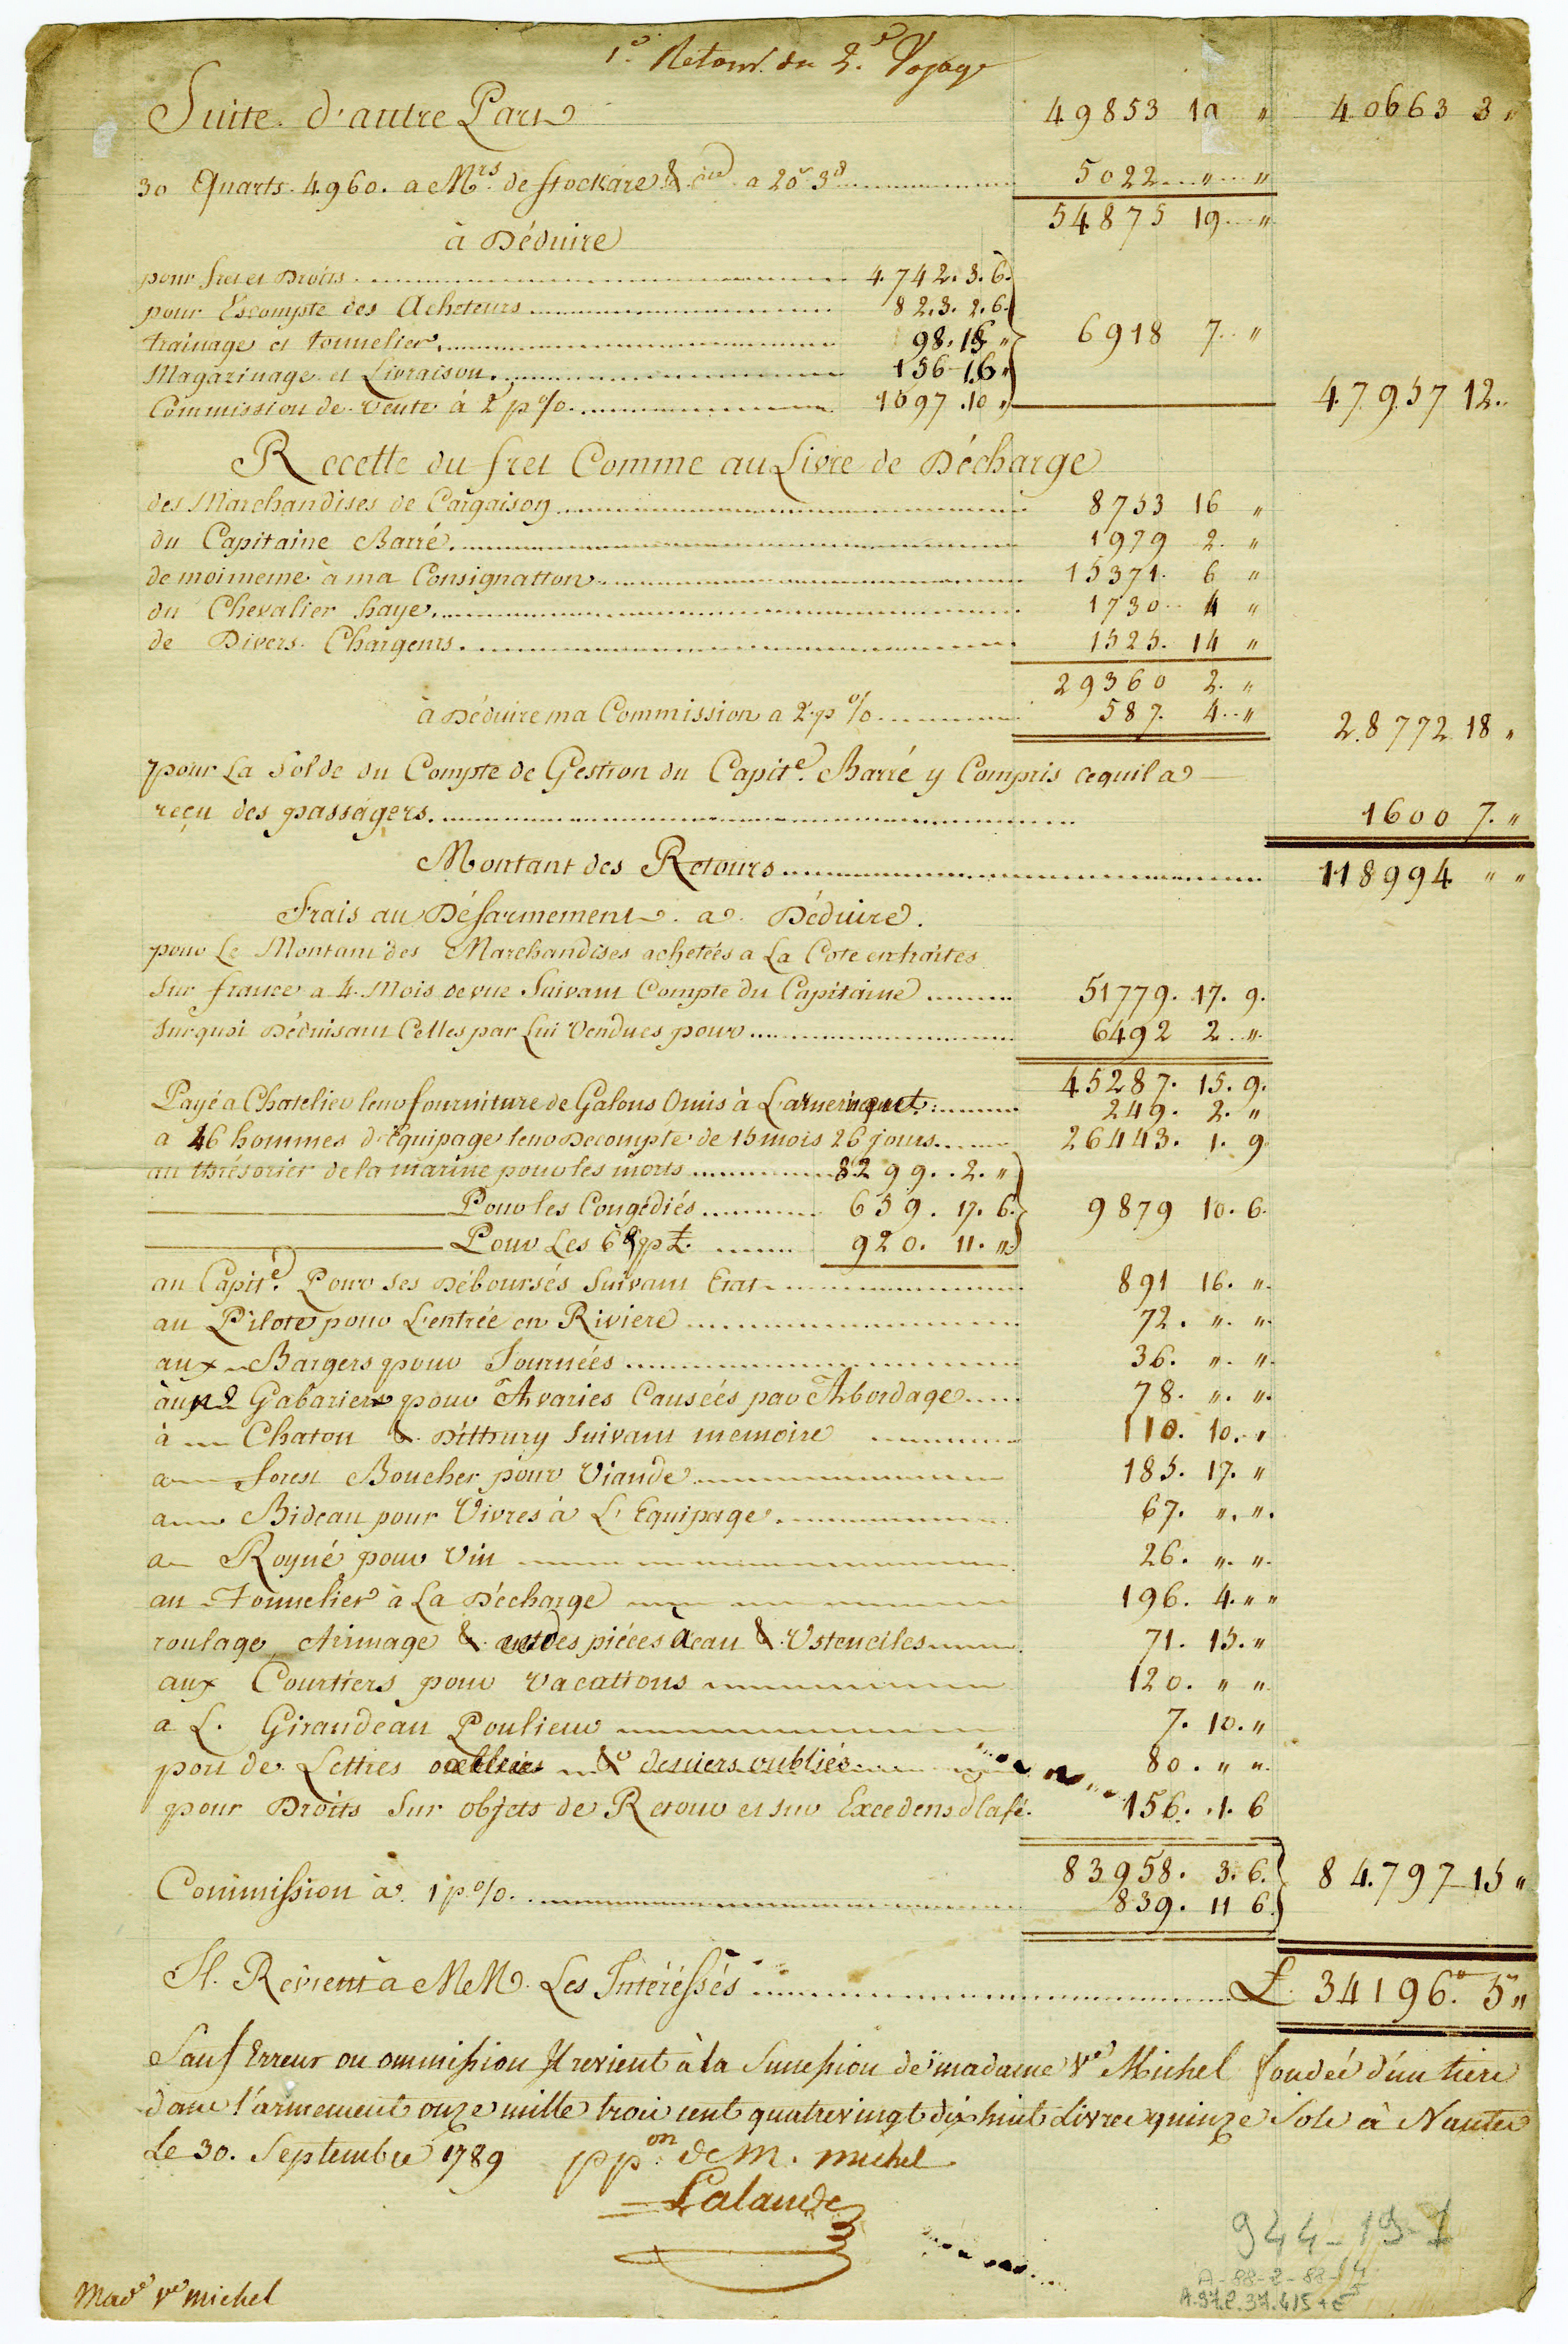 1er Retour du 2e Voyage
Suite d'autre Part 49853 19 " 40663 3 "
30 Quarts 4960. a Mrs de Stockare & Cie a 20s 3d 5022 " "
54875 19 "
à Déduire
pour fret et Droits 4742. 3. 6.
pour Escompte des Acheteurs 823. 2. 6.
trainage et tonnelier 98. 15 " 6918 7 "
Magazinage et Livraison 156 16 "
Commission de vente à 2 p % 1097. 10 " 47957 12
Recette du fret Comme au Livre de Décharge
des Marchandises de Cargaison 8753 16 "
du Capitaine Barré 1979 2 "
de moimeme à ma Consignation 15371. 6 "
du Chevalier haye 1730 4 "
de Divers Chargeurs 1525. 14 "
29360 2. "
à Déduire ma Commission a 2 p % 587. 4 " 28772 18 "
pour La Solde du Compte de Gestion du Capite. Barré y Compris cequila
reçu des passagers 1600 7. "
Montant des Retours 118994 " "
Frais au Désarmement a Déduire.
pour Le Montant des Marchandises achetées a La Cote en traites
Sur france a 4 Mois de vue Suivant Compte du Capitaine 51779. 17. 9.
Surquoi Déduisant Celles par Lui Vendues pour 6492 2 "
45287. 15. 9.
Payé a Chatelier leur fourniture de Galons Omis à L'armement 249. 2. "
a 46 hommes d'Equipage leur Decompte de 15 mois 26 jours 26443. 1. 9
au thrésorier de la marine pour les morts 8299. 2. "
Pour les Congédiés 659. 17. 6. 9879 10. 6.
Pour Les 6 920. 11. "
au Capite. Pour Ses Déboursés Suivant Etat 891 16. "
au Pilote pour L'entrée en Riviere 72. " "
aux Bargers pour Journées 36. " "
aux 2 Gabariers pour Avaries Causées par Abordage 78. " "
à Chaton & Dithury Suivant memoire 110. 10. "
a forest Boucher pour Viande 185. 17. "
a Bideau pour Vivres à L'Equipage 67. " "
a Royné pour Vin 26. " "
au Tonnelier à La Décharge 196. 4. " "
roulage Arimage & des piéces à eau & Ustenciles 71. 15. "
aux Courtiers pour Vacations 120. " "
a L. Giraudeau Poulieur 7. 10. "
port de Lettres & deniers oubliés 80. " "
pour Droits Sur objets de Retour et sur Excedens d Café. 156. 1. 6
83958. 3. 6. 84797 15 "
Commission à 1 p % 839. 11 6
Il Revient à MM. Les Intéréssés £. 34196. 5 "
Sauf Erreur ou ommission Il revient à la Sucession de madame Ve Michel fondée d'un tiers
dans l'armement onze mille trois cent quatrevingt dix huit Livres quinze Sols à Nantes
Le 30. Septembre 1789 ppon de M. michel
Lalande
944-19-1
A-88-2-88-14
Made Ve michel